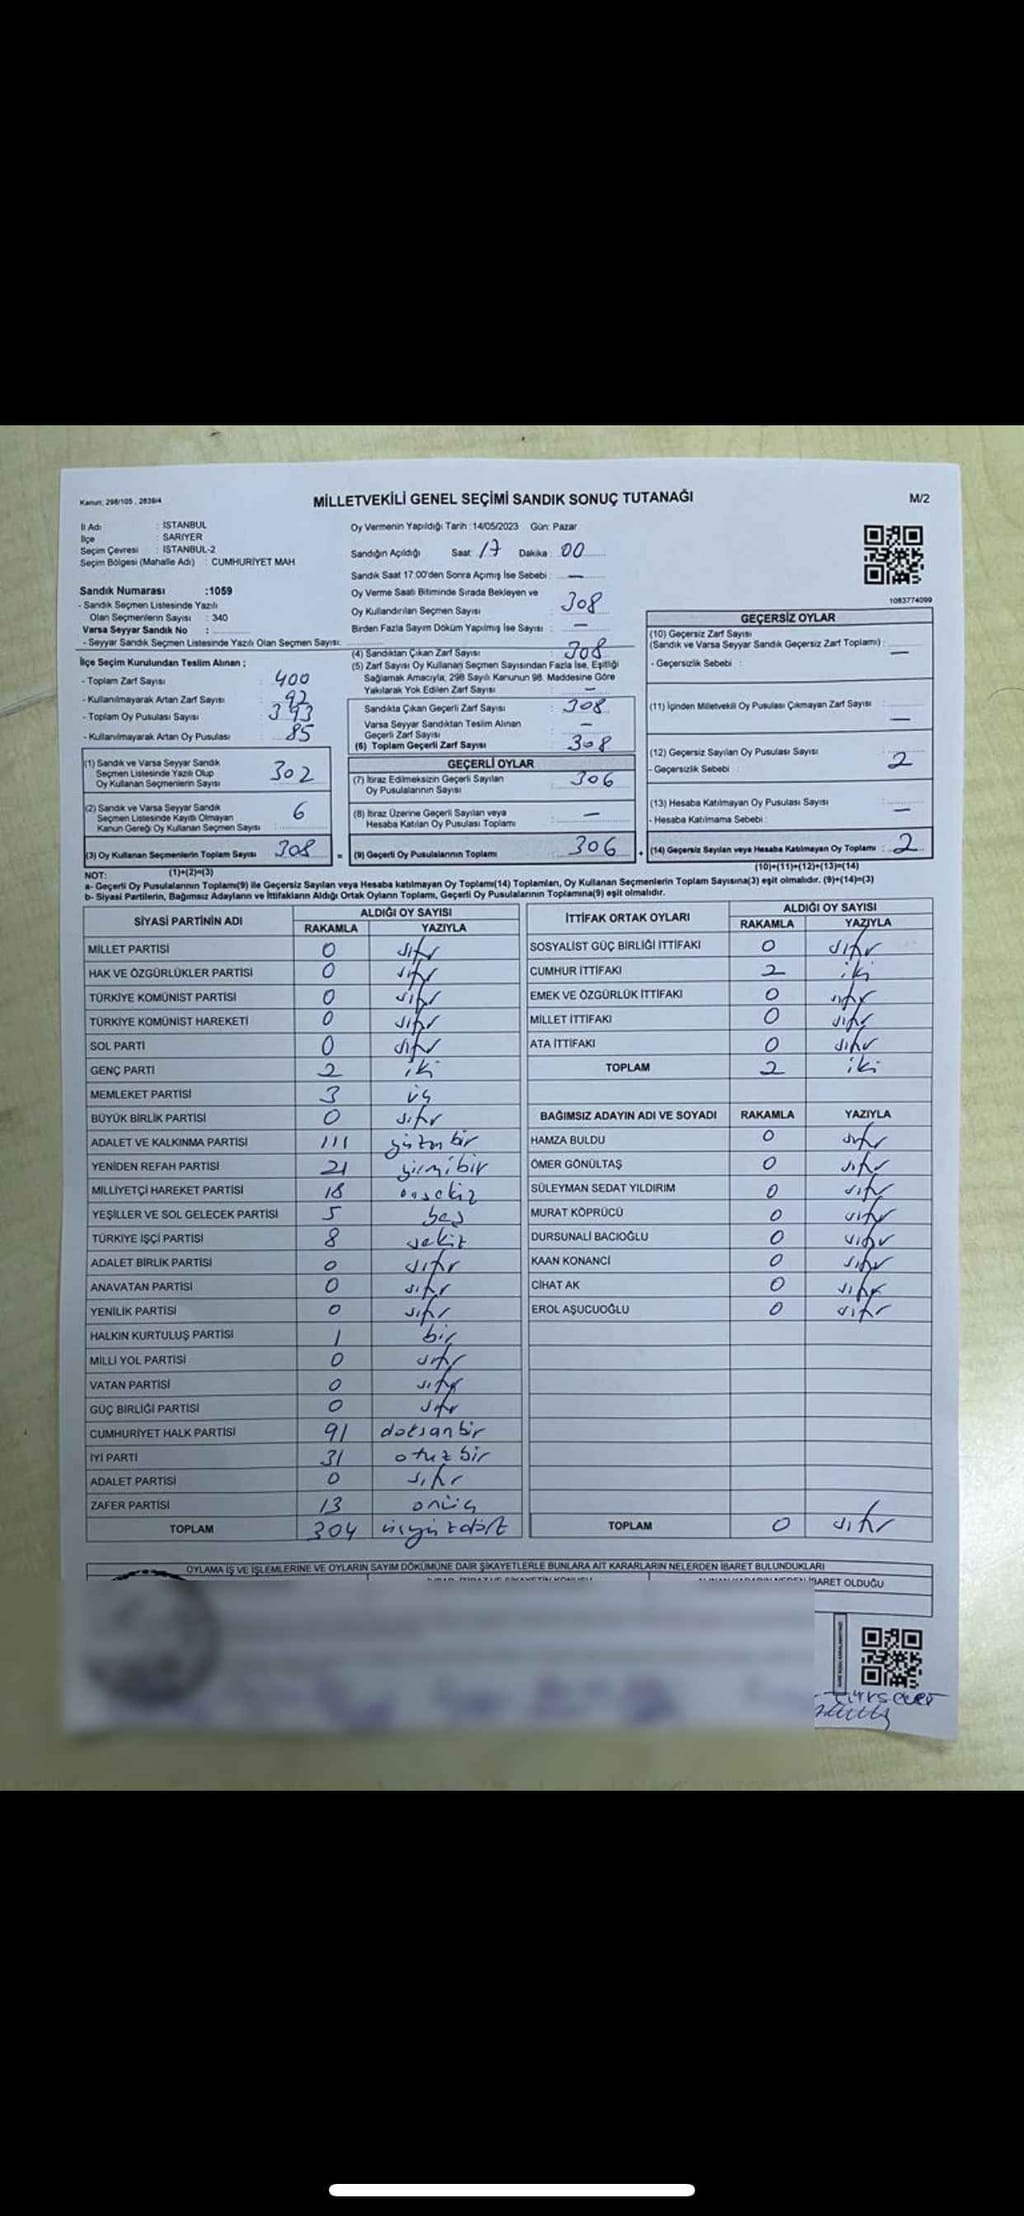 Kanun: 298/105 , 2839/4
MİLLETVEKİLİ GENEL SEÇİMİ SANDIK SONUÇ TUTANAĞI
M/2
İl Adı : İSTANBUL
İlçe : SARIYER
Seçim Çevresi : İSTANBUL-2
Seçim Bölgesi (Mahalle Adı) : CUMHURİYET MAH
Sandık Numarası :1059
- Sandık Seçmen Listesinde Yazılı
Olan Seçmenlerin Sayısı : 340
Varsa Seyyar Sandık No :
- Seyyar Sandık Seçmen Listesinde Yazılı Olan Seçmen Sayısı:
Oy Vermenin Yapıldığı Tarih :14/05/2023 Gün: Pazar
Sandığın Açıldığı Saat: 17 Dakika : 00
Sandık Saat 17:00'den Sonra Açımış İse Sebebi : —
Oy Verme Saati Bitiminde Sırada Bekleyen ve
Oy Kullandırılan Seçmen Sayısı : 308
Birden Fazla Sayım Döküm Yapılmış İse Sayısı : —
1083774099
İlçe Seçim Kurulundan Teslim Alınan ;
- Toplam Zarf Sayısı : 400
- Kullanılmayarak Artan Zarf Sayısı : 92
- Toplam Oy Pusulası Sayısı : 393
- Kullanılmayarak Artan Oy Pusulası : 85
(1) Sandık ve Varsa Seyyar Sandık
Seçmen Listesinde Yazılı Olup
Oy Kullanan Seçmenlerin Sayısı : 302
(2) Sandık ve Varsa Seyyar Sandık
Seçmen Listesinde Kayıtlı Olmayan
Kanun Gereği Oy Kullanan Seçmen Sayısı : 6
(3) Oy Kullanan Seçmenlerin Toplam Sayısı : 308
(1)+(2)=(3)
(4) Sandıktan Çıkan Zarf Sayısı : 308
(5) Zarf Sayısı Oy Kullanan Seçmen Sayısından Fazla İse, Eşitliği
Sağlamak Amacıyla, 298 Sayılı Kanunun 98. Maddesine Göre
Yakılarak Yok Edilen Zarf Sayısı : —
Sandıkta Çıkan Geçerli Zarf Sayısı : 308
Varsa Seyyar Sandıktan Teslim Alınan
Geçerli Zarf Sayısı : —
(6) Toplam Geçerli Zarf Sayısı : 308
GEÇERLİ OYLAR
(7) İtiraz Edilmeksizin Geçerli Sayılan
Oy Pusulalarının Sayısı : 306
(8) İtiraz Üzerine Geçerli Sayılan veya
Hesaba Katılan Oy Pusulası Toplamı : —
= (9) Geçerli Oy Pusulalarının Toplamı : 306
GEÇERSİZ OYLAR
(10) Geçersiz Zarf Sayısı
(Sandık ve Varsa Seyyar Sandık Geçersiz Zarf Toplamı) : —
- Geçersizlik Sebebi :
(11) İçinden Milletvekili Oy Pusulası Çıkmayan Zarf Sayısı : —
(12) Geçersiz Sayılan Oy Pusulası Sayısı : 2
- Geçersizlik Sebebi :
(13) Hesaba Katılmayan Oy Pusulası Sayısı : —
- Hesaba Katılmama Sebebi :
+ (14) Geçersiz Sayılan veya Hesaba Katılmayan Oy Toplamı : 2
(10)+(11)+(12)+(13)=(14)
NOT:
a- Geçerli Oy Pusulalarının Toplamı(9) ile Geçersiz Sayılan veya Hesaba katılmayan Oy Toplamı(14) Toplamları, Oy Kullanan Seçmenlerin Toplam Sayısına(3) eşit olmalıdır. (9)+(14)=(3)
b- Siyasi Partilerin, Bağımsız Adayların ve İttifakların Aldığı Ortak Oyların Toplamı, Geçerli Oy Pusulalarının Toplamına(9) eşit olmalıdır.
SİYASİ PARTİNİN ADI ALDIĞI OY SAYISI
RAKAMLA YAZIYLA
MİLLET PARTİSİ 0 sıfır
HAK VE ÖZGÜRLÜKLER PARTİSİ 0 sıfır
TÜRKİYE KOMÜNİST PARTİSİ 0 sıfır
TÜRKİYE KOMÜNİST HAREKETİ 0 sıfır
SOL PARTİ 0 sıfır
GENÇ PARTİ 2 iki
MEMLEKET PARTİSİ 3 üç
BÜYÜK BİRLİK PARTİSİ 0 sıfır
ADALET VE KALKINMA PARTİSİ 111 yüzonbir
YENİDEN REFAH PARTİSİ 21 yirmibir
MİLLİYETÇİ HAREKET PARTİSİ 18 onsekiz
YEŞİLLER VE SOL GELECEK PARTİSİ 5 beş
TÜRKİYE İŞÇİ PARTİSİ 8 sekiz
ADALET BİRLİK PARTİSİ 0 sıfır
ANAVATAN PARTİSİ 0 sıfır
YENİLİK PARTİSİ 0 sıfır
HALKIN KURTULUŞ PARTİSİ 1 bir
MİLLİ YOL PARTİSİ 0 sıfır
VATAN PARTİSİ 0 sıfır
GÜÇ BİRLİĞİ PARTİSİ 0 sıfır
CUMHURİYET HALK PARTİSİ 91 doksanbir
İYİ PARTİ 31 otuzbir
ADALET PARTİSİ 0 sıfır
ZAFER PARTİSİ 13 onüç
TOPLAM 304 üçyüzdört
İTTİFAK ORTAK OYLARI ALDIĞI OY SAYISI
RAKAMLA YAZIYLA
SOSYALİST GÜÇ BİRLİĞİ İTTİFAKI 0 sıfır
CUMHUR İTTİFAKI 2 iki
EMEK VE ÖZGÜRLÜK İTTİFAKI 0 sıfır
MİLLET İTTİFAKI 0 sıfır
ATA İTTİFAKI 0 sıfır
TOPLAM 2 iki
BAĞIMSIZ ADAYIN ADI VE SOYADI RAKAMLA YAZIYLA
HAMZA BULDU 0 sıfır
ÖMER GÖNÜLTAŞ 0 sıfır
SÜLEYMAN SEDAT YILDIRIM 0 sıfır
MURAT KÖPRÜCÜ 0 sıfır
DURSUNALİ BACIOĞLU 0 sıfır
KAAN KONANCİ 0 sıfır
CİHAT AK 0 sıfır
EROL AŞUCUOĞLU 0 sıfır
TOPLAM 0 sıfır
OYLAMA İŞ VE İŞLEMLERİNE VE OYLARIN SAYIM DÖKÜMÜNE DAİR ŞİKAYETLERLE BUNLARA AİT KARARLARIN NELERDEN İBARET BULUNDUKLARI
İBARET OLDUĞU